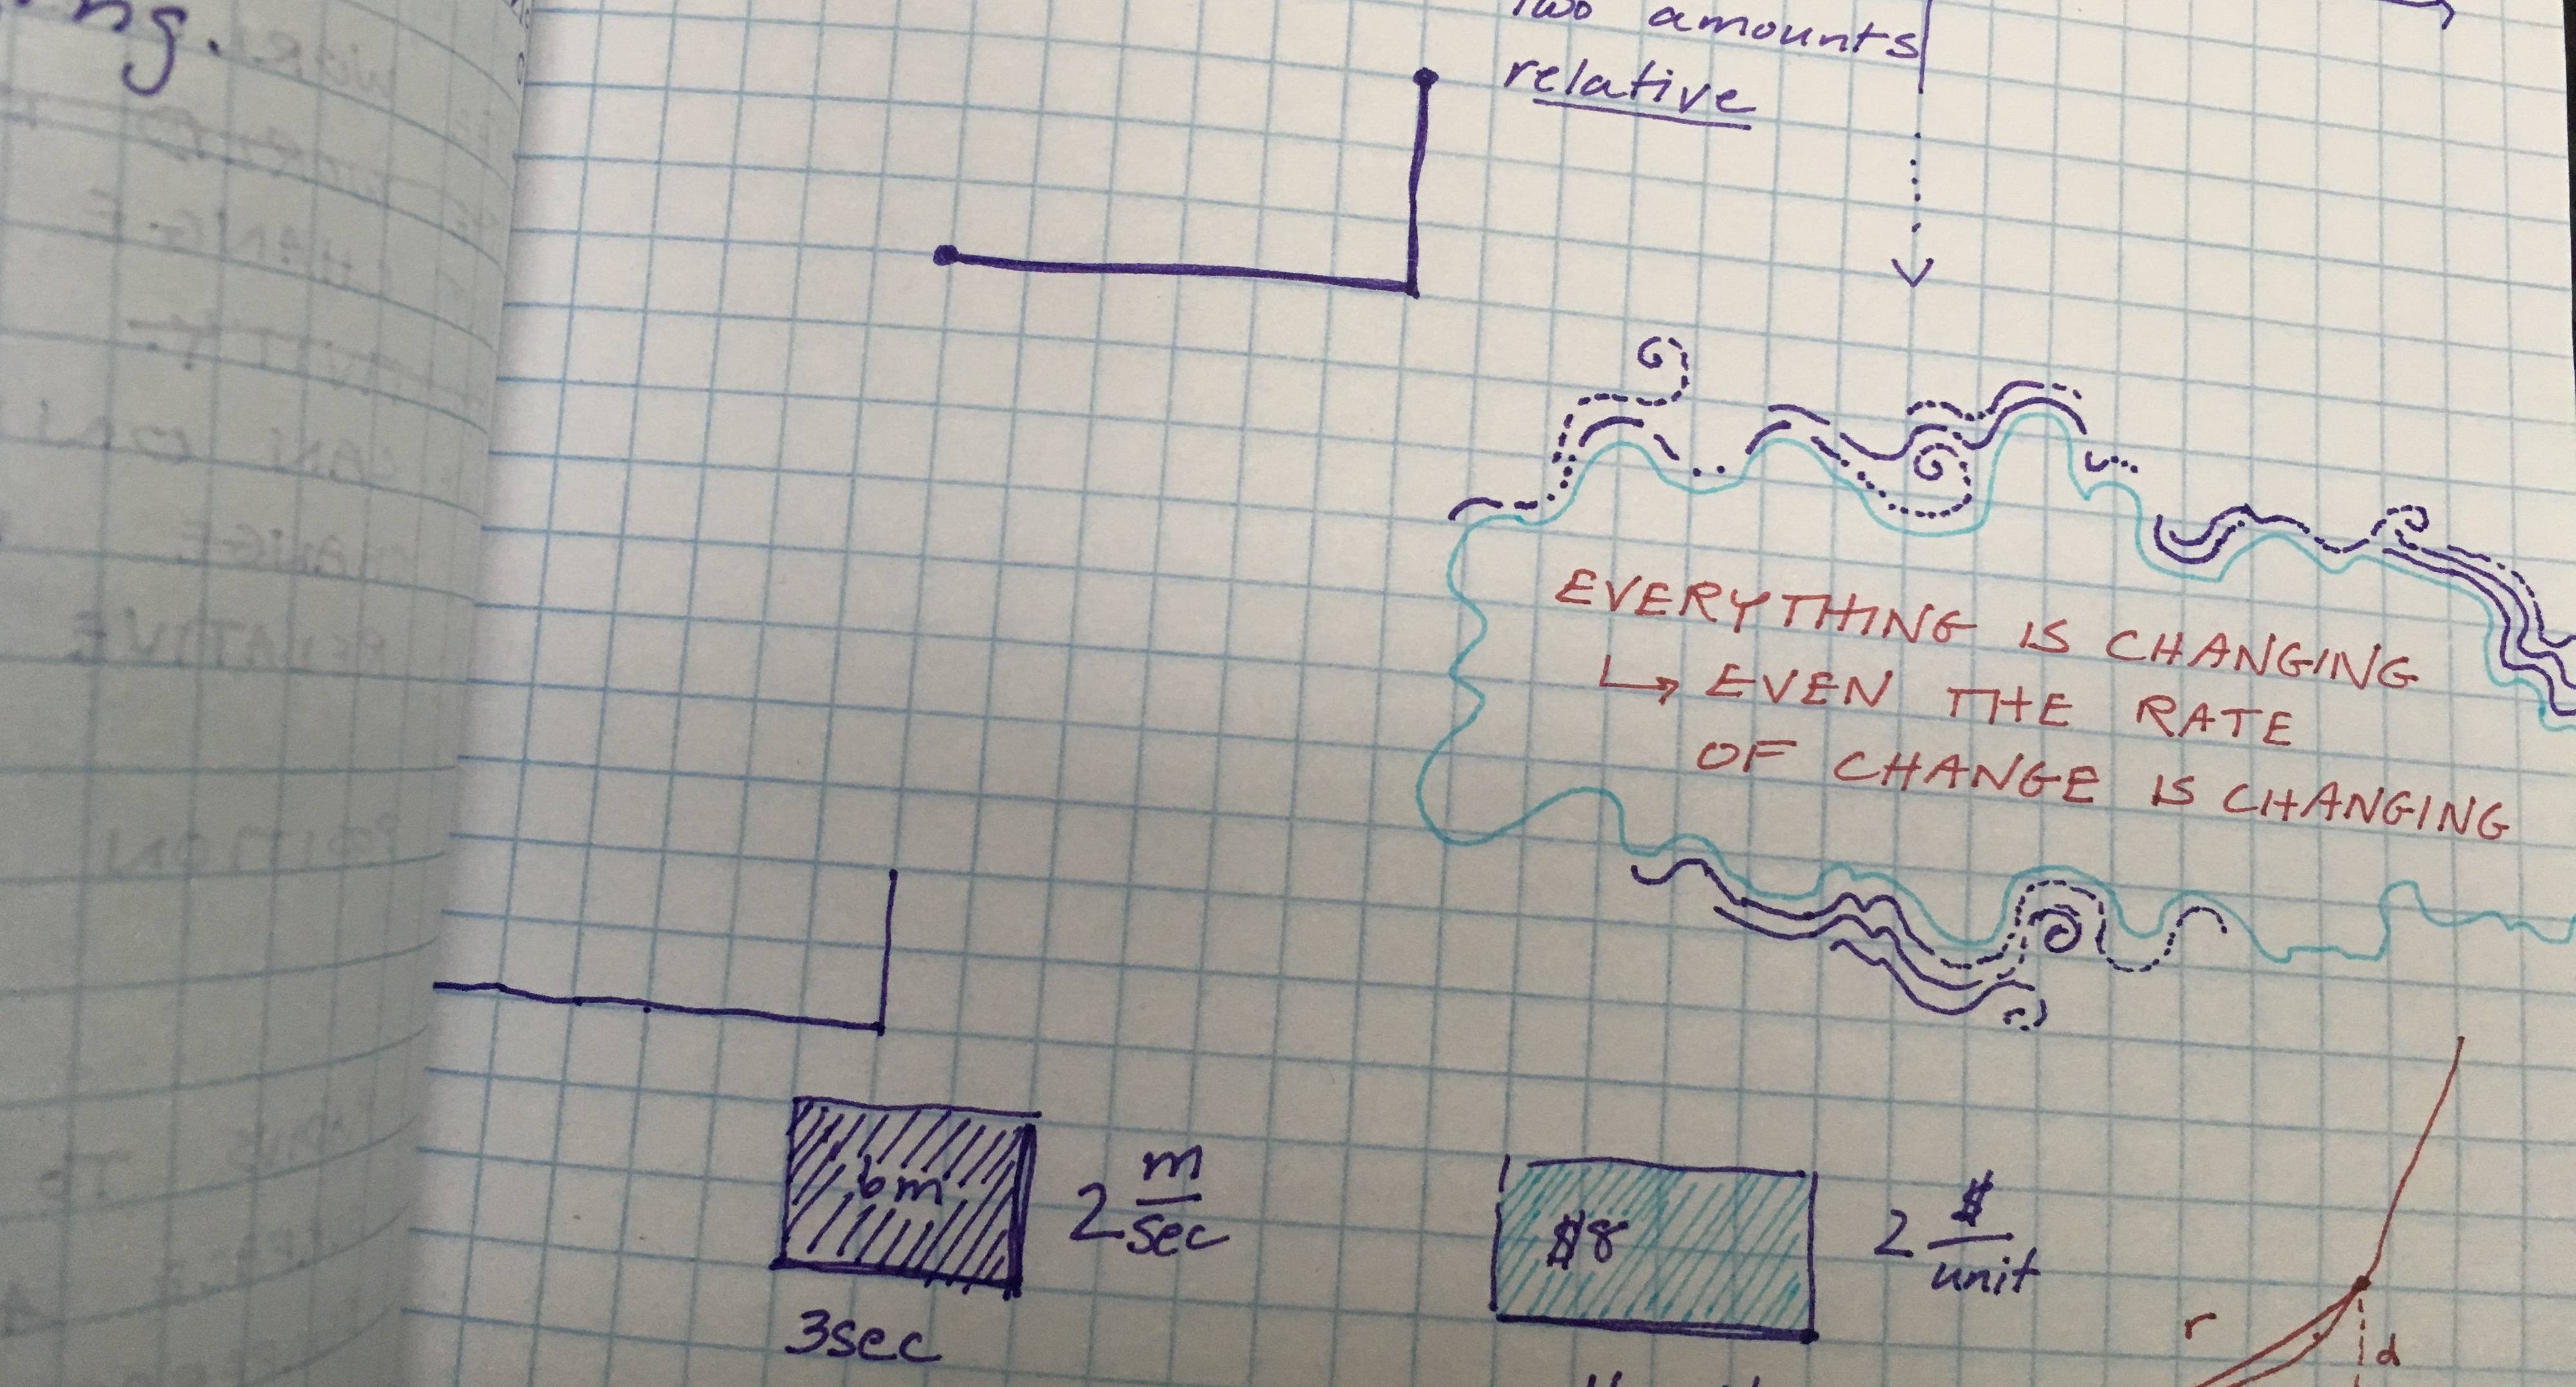 ng.
two amounts
relative
EVERYTHING IS CHANGING
↳ EVEN THE RATE
OF CHANGE IS CHANGING
6m
2 m/sec
3sec
$8
2 $/unit
r
d